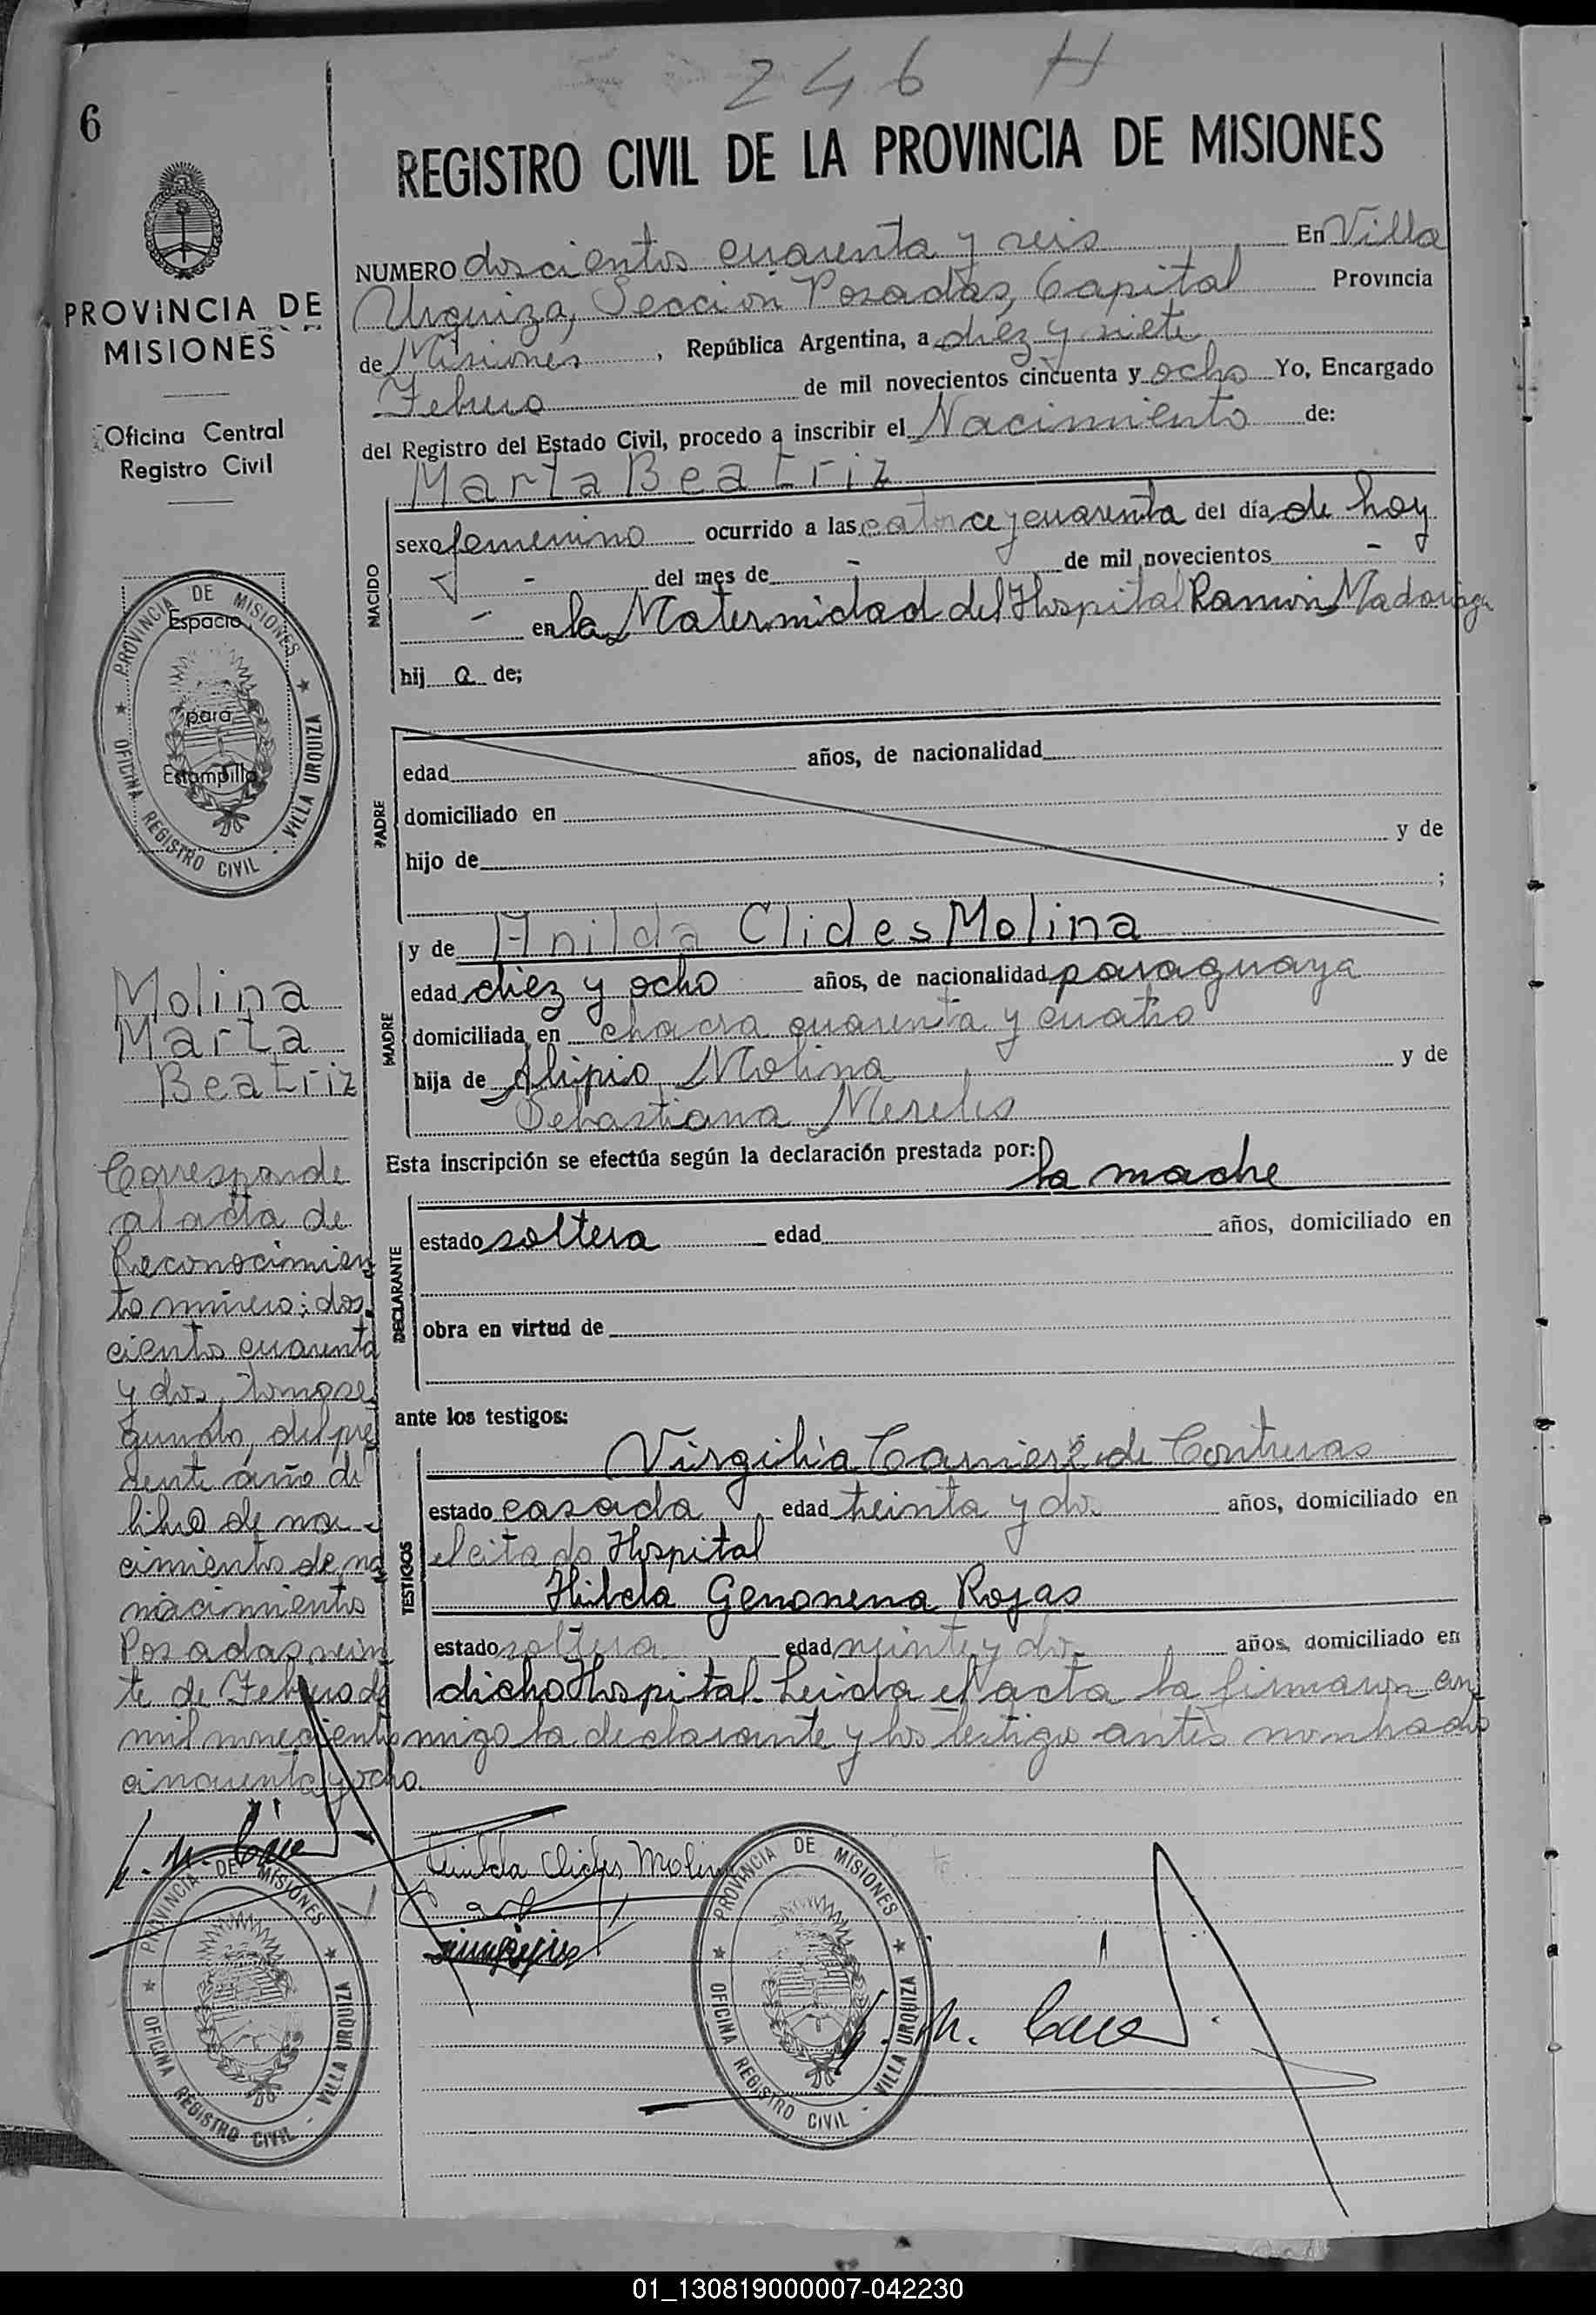 246 H
6
REGISTRO CIVIL DE LA PROVINCIA DE MISIONES
PROVINCIA DE
MISIONES
Oficina Central
Registro Civil
NUMERO doscientos cuarenta y seis En Villa
Urquiza, Sección Posadas, Capital Provincia
de Misiones, República Argentina, a diez y siete
Febrero de mil novecientos cincuenta y ocho Yo, Encargado
del Registro del Estado Civil, procedo a inscribir el Nacimiento de:
Marta Beatriz
NACIDO
sexo femenino ocurrido a las catorce y cuarenta del día de hoy
- del mes de - de mil novecientos -
- en la Maternidad del Hospital Ramón Madariaga
hij a de;
PROVINCIA DE MISIONES
OFICINA REGISTRO CIVIL - VILLA URQUIZA
Espacio
para
Estampilla
PADRE
edad años, de nacionalidad
domiciliado en
hijo de y de
;
MADRE
y de Anilda Clides Molina
edad diez y ocho años, de nacionalidad paraguaya
domiciliada en chacra cuarenta y cuatro
hija de Alipio Molina y de
Sebastiana Mereles
Esta inscripción se efectúa según la declaración prestada por:
la madre
DECLARANTE
estado soltera edad años, domiciliado en
obra en virtud de
ante los testigos:
TESTIGOS
Virgilia de Contreras
estado casada edad treinta y dos años, domiciliado en
el citado Hospital
Hilda Genonena Rojas
estado soltera edad veinte y dos años, domiciliado en
dicho Hospital. Leída el acta la firmaron con
migo la declarante y los testigos antes nombrados
Molina
Marta
Beatriz
Corresponde
al acta de
Reconocimien
to número: dos
cientos cuarenta
y dos, tomo se
gundo, del pre
sente año de
libro de na
cimientos de na
nacimientos
Posadas vein
te de Febrero de
mil novecientos
cincuenta y ocho.
Clides Molina
PROVINCIA DE MISIONES
OFICINA REGISTRO CIVIL - VILLA URQUIZA
PROVINCIA DE MISIONES
OFICINA REGISTRO CIVIL - VILLA URQUIZA
01_130819000007-042230